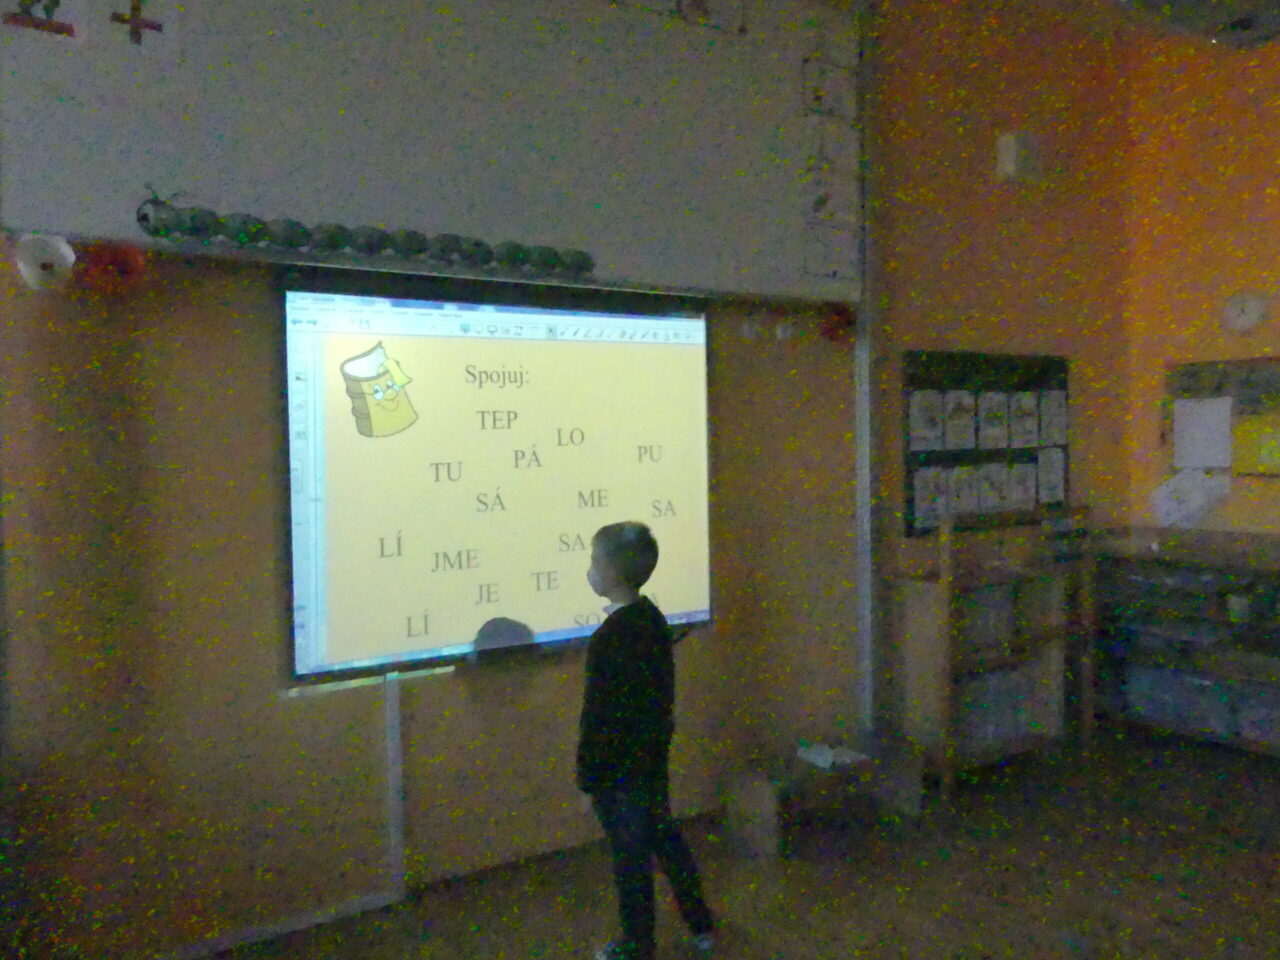 Spojuj:
TEP
LO
TU
PÁ
PU
SÁ
ME
SA
LÍ
JME
SA
JE
TE
LÍ
SO